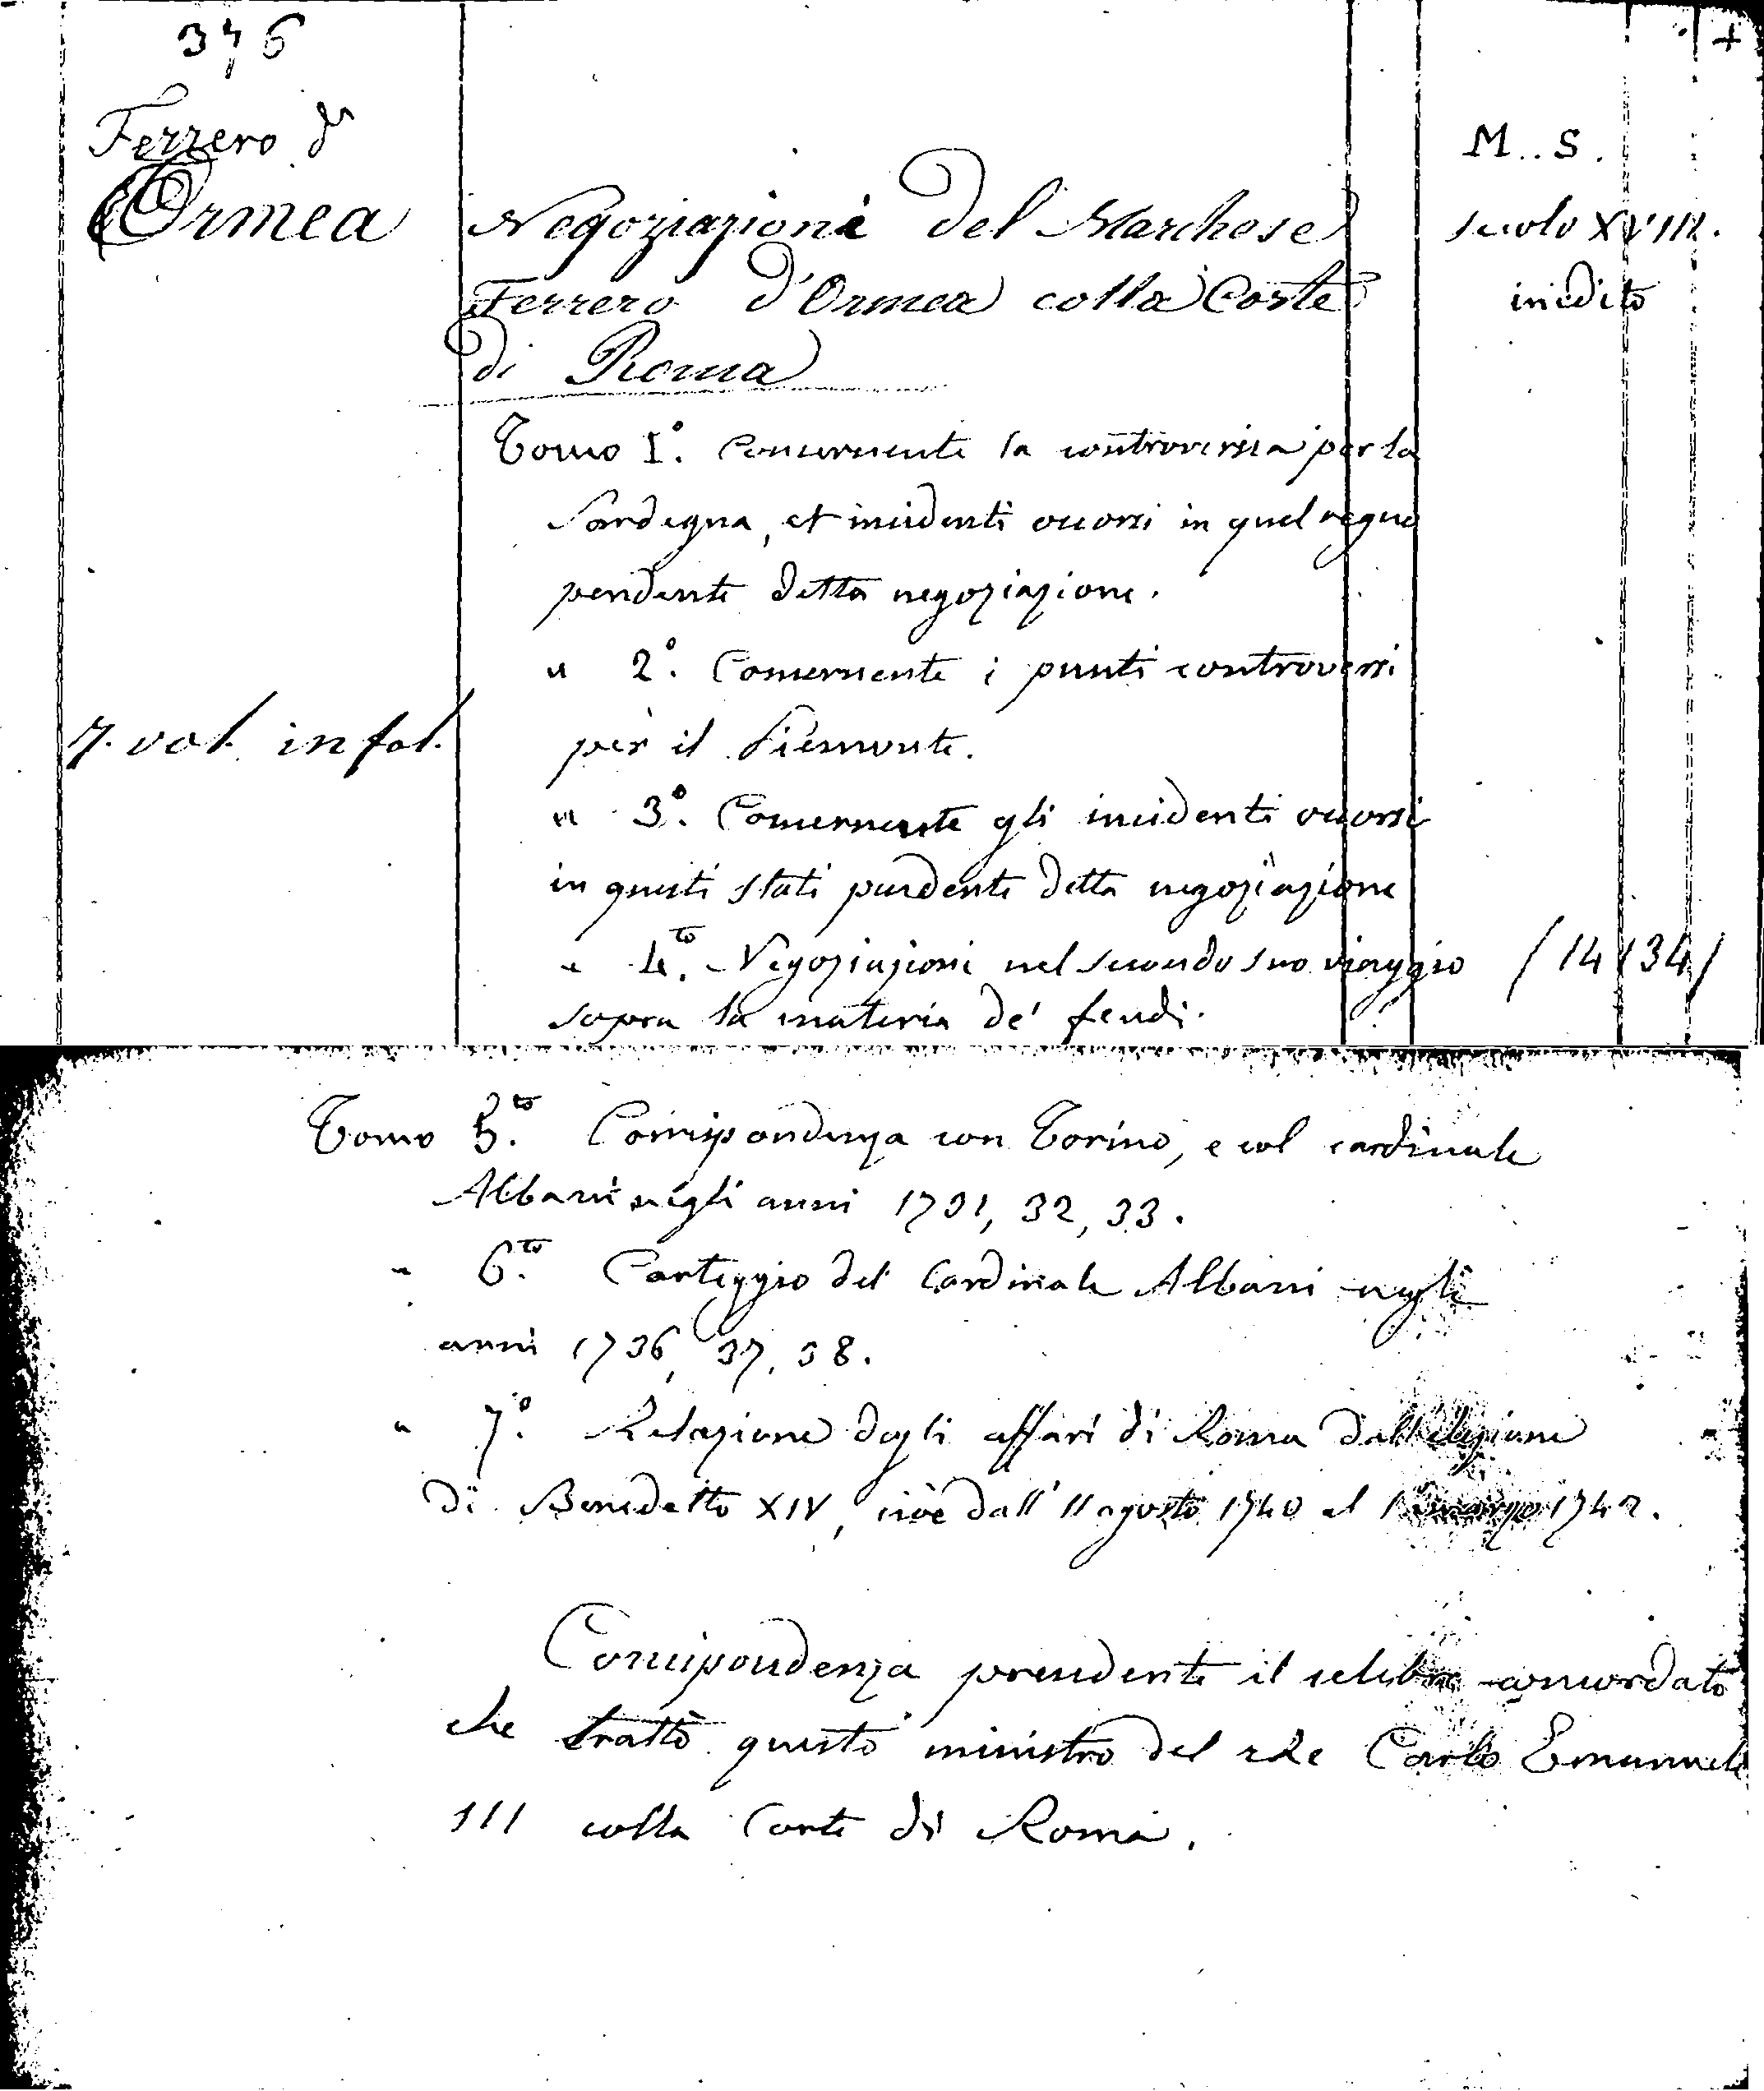 376
+
Ferrero d'
Ormea
M. S.
secolo XVIII.
inedito
Negoziazioni del Marchese
Ferrero d'Ormea colla Corte
di Roma
Tomo I.° Concernente la controversia per la
Sardegna, et incidenti occorsi in quel regno
pendente detta negoziazione.
" 2.° Concernente i punti controversi
per il Piemonte.
7. vol. in fol.
" 3.° Concernente gli incidenti occorsi
in questi stati pendente detta negoziazione
" 4.to Negoziazioni nel secondo suo viaggio
/ 14 / 34 /
sopra la materia de' feudi.
Tomo 5.to Corrispondenza con Torino, e col cardinale
Albani negli anni 1731, 32, 33.
" 6.to Carteggio del Cardinale Albani negli
anni 1736, 37, 38.
" 7.° Relazione degli affari di Roma dall'elezione
di Benedetto XIV, cioè dall' 11 agosto 1740 al 1742.
Corrispondenza prendente il celebre concordato
che trattò questo ministro del re Carlo Emanuele
III colla Corte di Roma.